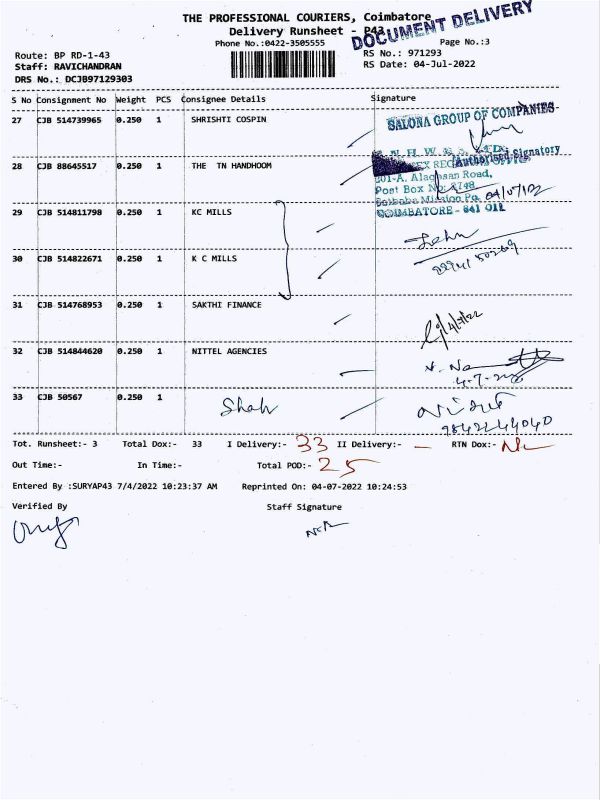 THE PROFESSIONAL COURIERS, Coimbatore
Delivery Runsheet - P43
DOCUMENT DELIVERY
Phone No.:0422-3505555
Page No.:3
Route: BP RD-1-43
RS No.: 971293
Staff: RAVICHANDRAN
RS Date: 04-Jul-2022
DRS No.: DCJB97129303
S No Consignment No Weight PCS Consignee Details Signature
27 CJB 514739965 0.250 1 SHRISHTI COSPIN
SALONA GROUP OF COMPANIES
Authorised Signatory
28 CJB 88645517 0.250 1 THE TN HANDHOOM
201-A. Alagesan Road,
Post Box No: 2748
Saibaba Mission Po.
COIMBATORE - 641 011
04/07/22
29 CJB 514811798 0.250 1 KC MILLS
30 CJB 514822671 0.250 1 K C MILLS
31 CJB 514768953 0.250 1 SAKTHI FINANCE
32 CJB 514844620 0.250 1 NITTEL AGENCIES
33 CJB 50567 0.250 1 Shah
9842244040
Tot. Runsheet:- 3 Total Dox:- 33 I Delivery:- 33 II Delivery:- — RTN Dox:-
Out Time:- In Time:- Total POD:- 25
Entered By :SURYAP43 7/4/2022 10:23:37 AM Reprinted On: 04-07-2022 10:24:53
Verified By Staff Signature